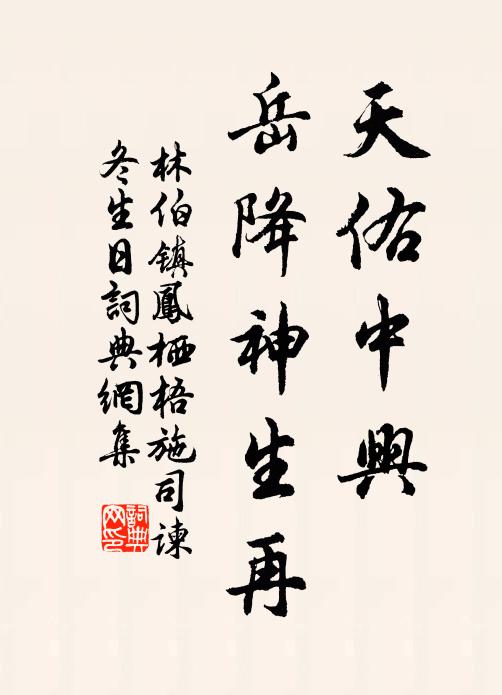 天佑中興
岳降神生再
林伯鎮鳳栖梧施司諫
冬生日詞典網集
詞典
网印